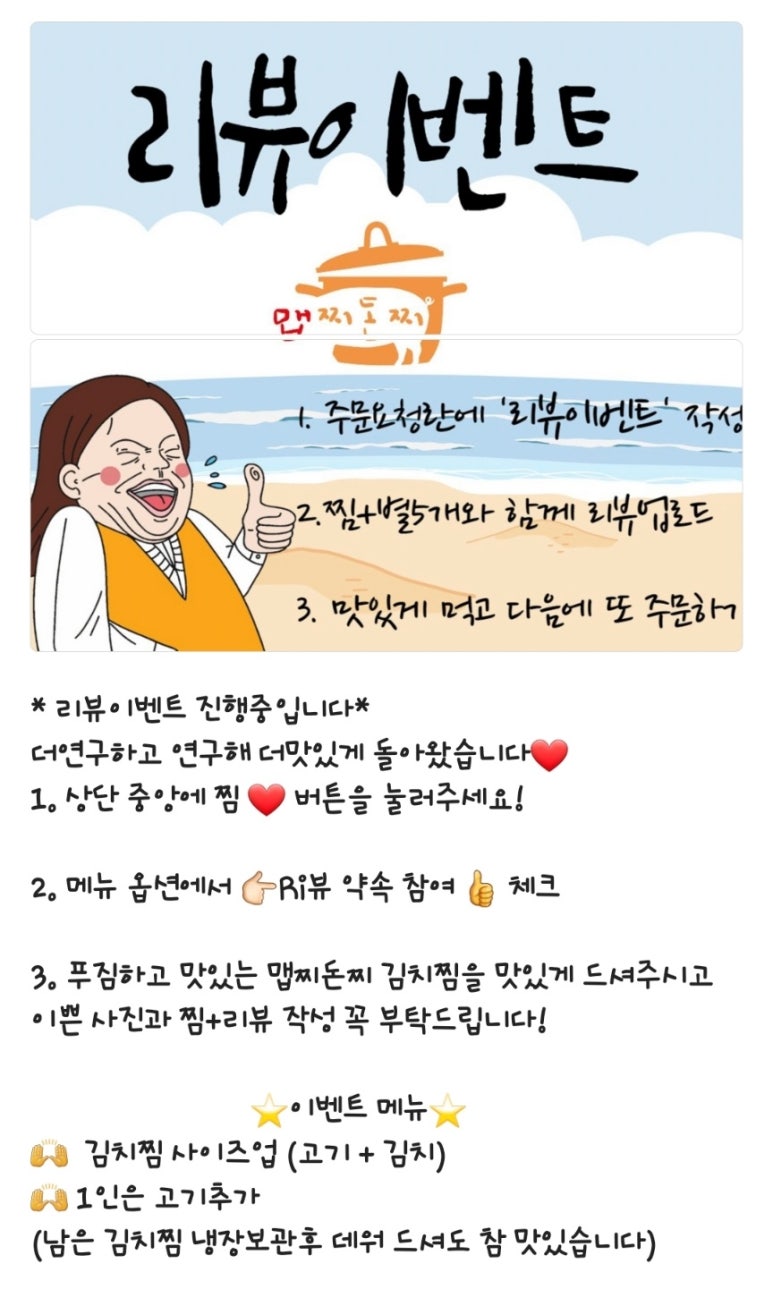 리뷰이벤트
맵찌돈찌
1. 주문요청란에 '리뷰이벤트' 작성
2. 찜+별5개와 함께 리뷰업로드
3. 맛있게 먹고 다음에 또 주문하기
* 리뷰이벤트 진행중입니다*
더연구하고 연구해 더맛있게 돌아왔습니다❤️
1. 상단 중앙에 찜 ❤️ 버튼을 눌러주세요!
2. 메뉴 옵션에서 👉🏻Ri뷰 약속 참여 👍 체크
3. 푸짐하고 맛있는 맵찌돈찌 김치찜을 맛있게 드셔주시고
이쁜 사진과 찜+리뷰 작성 꼭 부탁드립니다!
⭐이벤트 메뉴⭐
🙌 김치찜 사이즈업 (고기 + 김치)
🙌 1인은 고기추가
(남은 김치찜 냉장보관후 데워 드셔도 참 맛있습니다)